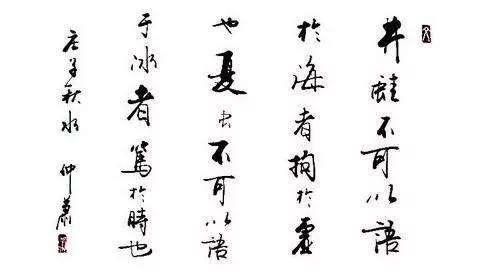 井蛙不可以語
於海者拘於虛
也夏虫不可以語
于冰者篤於時也
庄子秋水 仲蕭